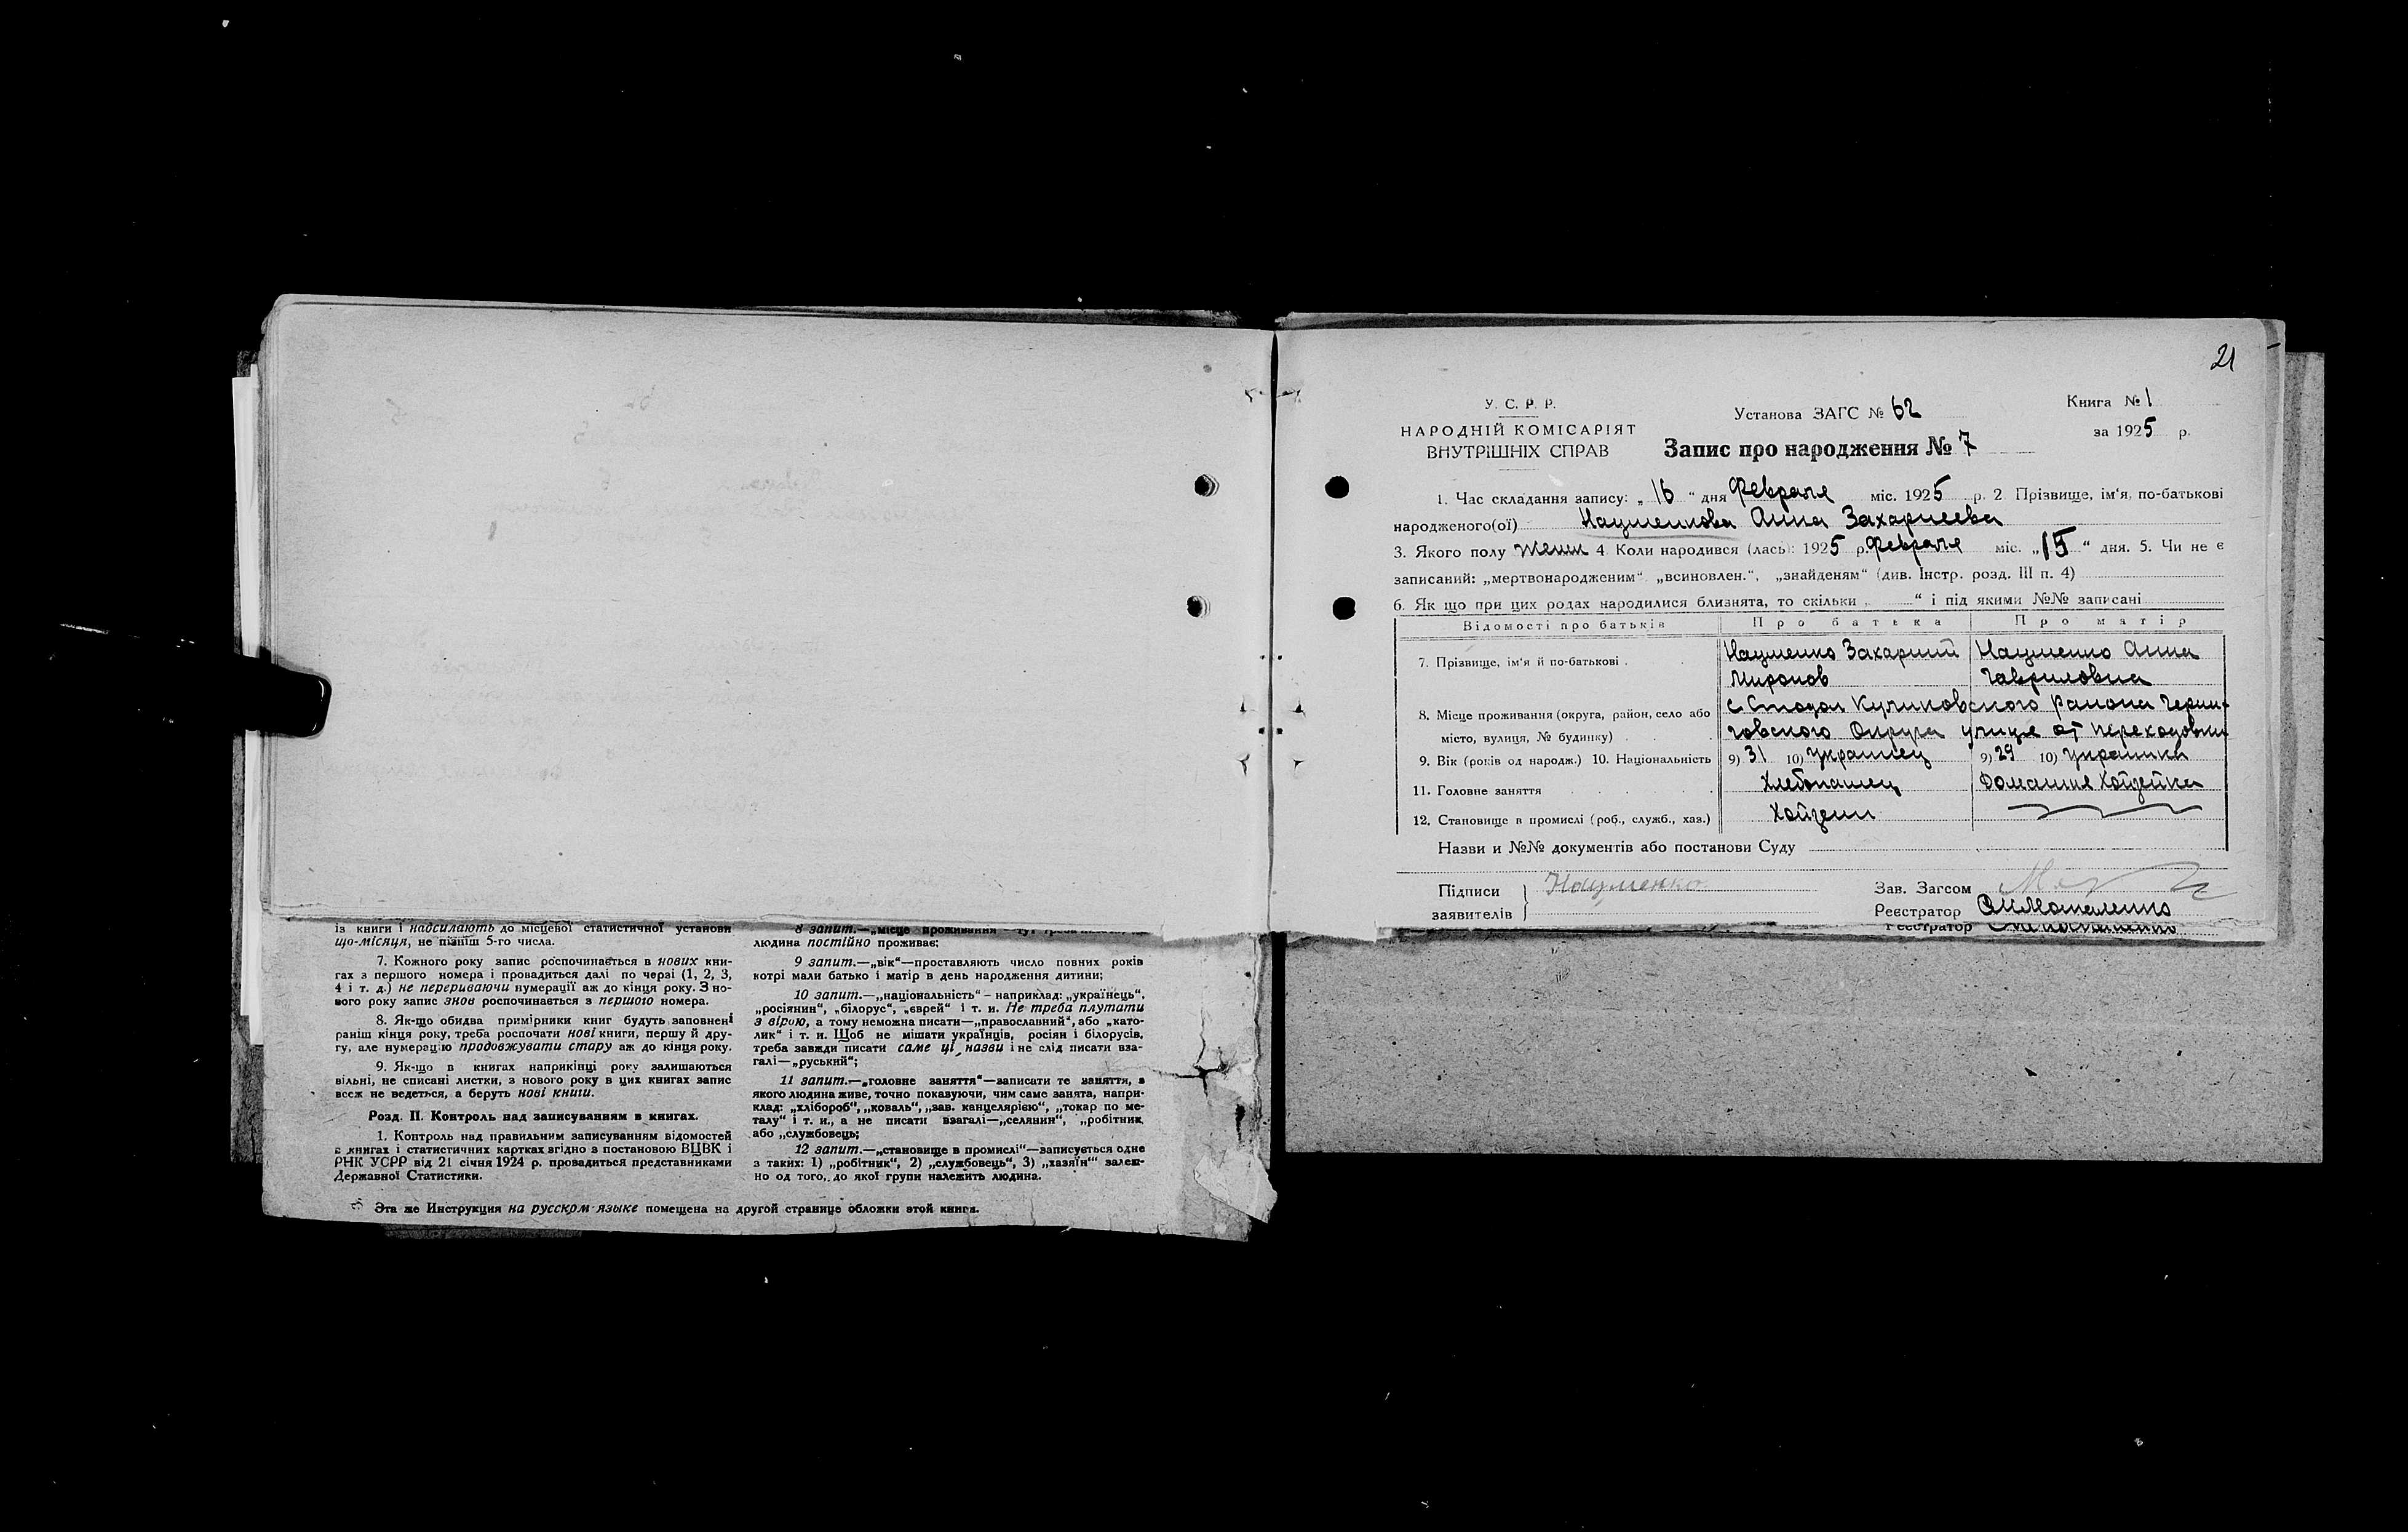 із книги і надсилають до місцевої статистичної установи
що-місяця, не пізніш 5-го числа.
7. Кожного року запис роспочинається в нових кни-
гах з першого номера і провадиться далі по черзі (1, 2, 3,
4 і т. д.) не перериваючи нумерації аж до кінця року. З но-
вого року запис знов роспочинається з першого номера.
8. Як-що обидва примірники книг будуть заповнені
раніш кінця року, треба роспочати нові книги, першу й дру-
гу, але нумерацію продовжувати стару аж до кінця року.
9. Як-що в книгах наприкінці року залишаються
вільні, не списані листки, з нового року в цих книгах запис
всеж не ведеться, а беруть нові книги.
Розд. II. Контроль над записуванням в книгах.
1. Контроль над правильним записуванням відомостей
в книгах і статистичних картках згідно з постановою ВЦВК і
РНК УСРР від 21 січня 1924 р. провадиться представниками
Державної Статистики.
8 запит.—„місце проживання
людина постійно проживає;
9 запит.—„вік“—проставляють число повних років
котрі мали батько і матір в день народження дитини;
10 запит.—„національність“ – наприклад: „українець“,
„росіянин“, „білорус“, „єврей“ і т. и. Не треба плутати
з вірою, а тому неможна писати—„православний“, або „като-
лик“ і т. и. Щоб не мішати українців, росіян і білорусів,
треба завжди писати саме ці назви і не слід писати вза-
галі—„руський“;
11 запит.—„головне заняття“—записати те заняття, з
якого людина живе, точно показуючи, чим саме занята, напри-
клад: „хлібороб“, „коваль“, „зав. канцелярією“, „токар по ме-
талу“ і т. и., а не писати взагалі—„селянин“, „робітник,
або „службовець;
12 запит.—„становище в промислі“—записується одне
з таких: 1) „робітник“, 2) „службовець“, 3) „хазяїн“ залеж-
но од того, до якої групи належить людина.
Эта же Инструкция на русском языке помещена на другой странице обложки этой книги.
21
У. С. Р. Р.
НАРОДНІЙ КОМІСАРІЯТ
ВНУТРІШНІХ СПРАВ
Установа ЗАГС № 62
Книга № 1
за 1925 р.
Запис про народження № 7
1. Час складання запису: „16“ дня февраля міс. 1925 р. 2 Прізвище, ім‘я, по-батькові
народженого(ої) Науменкова Анна Захариева
3. Якого полу женск 4 Коли народився (лась): 1925 р. февраля міс. „15“ дня. 5. Чи не є
записаний: „мертвонародженим“ „всиновлен.“, „знайденям“ (див. Інстр. розд. III п. 4)
6. Як що при цих родах народилися близнята, то скільки „ “ і під якими №№ записані
Відомості про батьків Про батька Про матір
7. Прізвище, ім‘я й по-батькові Науменко Захарий Науменко Анна
Миронов Гавриловна
8. Місце проживання (округа, район, село або с Стодол Куликовского района Черни-
місто, вулиця, № будинку) говского Округа улица от
9. Вік (років од народж.) 10. Національність 9) 31 10) украинец 9) 29 10) украинка
11. Головне заняття Хлебопашец Домашня хозяйка
12. Становище в промислі (роб., служб., хаз.) Хозяин
Назви и №№ документів або постанови Суду
Підписи Науменко Зав. Загсом
заявителів Реєстратор
Реєстратор